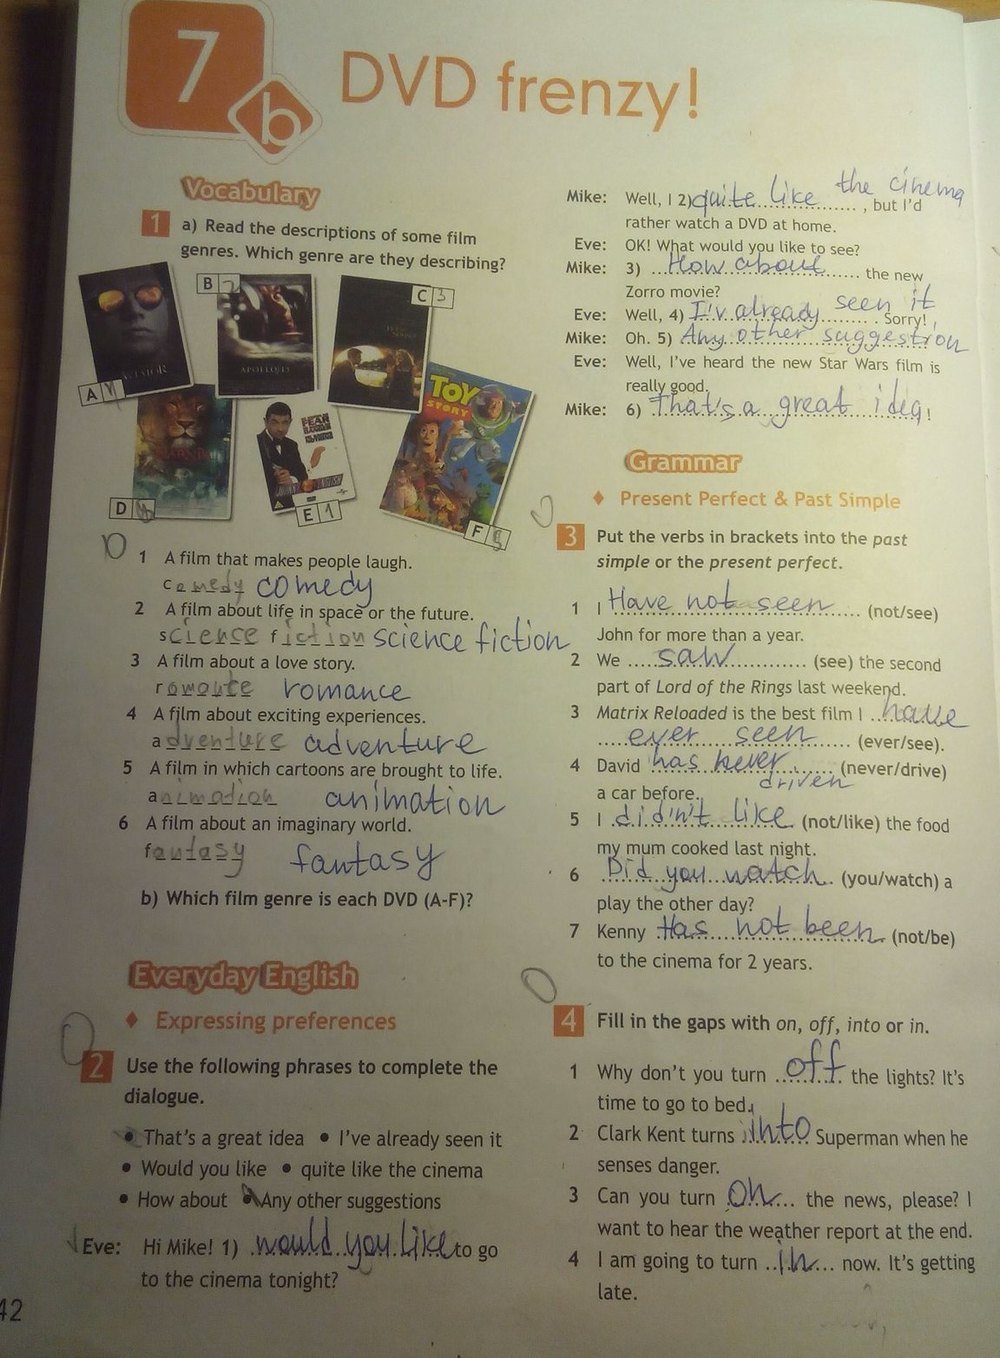 7
b
DVD frenzy!
Vocabulary
1 a) Read the descriptions of some film
genres. Which genre are they describing?
B 2
C 3
A 4
APOLLO 13
TOY
STORY
D
E 1
F
1 A film that makes people laugh.
comedy comedy
2 A film about life in space or the future.
science fiction science fiction
3 A film about a love story.
romance
4 A film about exciting experiences.
adventure adventure
5 A film in which cartoons are brought to life.
animation animation
6 A film about an imaginary world.
fantasy fantasy
b) Which film genre is each DVD (A-F)?
Everyday English
♦ Expressing preferences
2 Use the following phrases to complete the
dialogue.
• That's a great idea • I've already seen it
• Would you like • quite like the cinema
• How about • Any other suggestions
Eve: Hi Mike! 1) would you like to go
to the cinema tonight?
42
Mike: Well, I 2) quite like the cinema, but I'd
rather watch a DVD at home.
Eve: OK! What would you like to see?
Mike: 3) How about the new
Zorro movie?
Eve: Well, 4) I'v already seen it. Sorry!
Mike: Oh. 5) Any other suggestion
Eve: Well, I've heard the new Star Wars film is
really good.
Mike: 6) That's a great idea!
Grammar
♦ Present Perfect & Past Simple
3 Put the verbs in brackets into the past
simple or the present perfect.
1 I Have not seen (not/see)
John for more than a year.
2 We saw (see) the second
part of Lord of the Rings last weekend.
3 Matrix Reloaded is the best film I have
ever seen (ever/see).
4 David has never driven (never/drive)
a car before.
5 I didn't like (not/like) the food
my mum cooked last night.
6 Did you watch (you/watch) a
play the other day?
7 Kenny Has not been (not/be)
to the cinema for 2 years.
4 Fill in the gaps with on, off, into or in.
1 Why don't you turn off the lights? It's
time to go to bed.
2 Clark Kent turns into Superman when he
senses danger.
3 Can you turn on the news, please? I
want to hear the weather report at the end.
4 I am going to turn in now. It's getting
late.